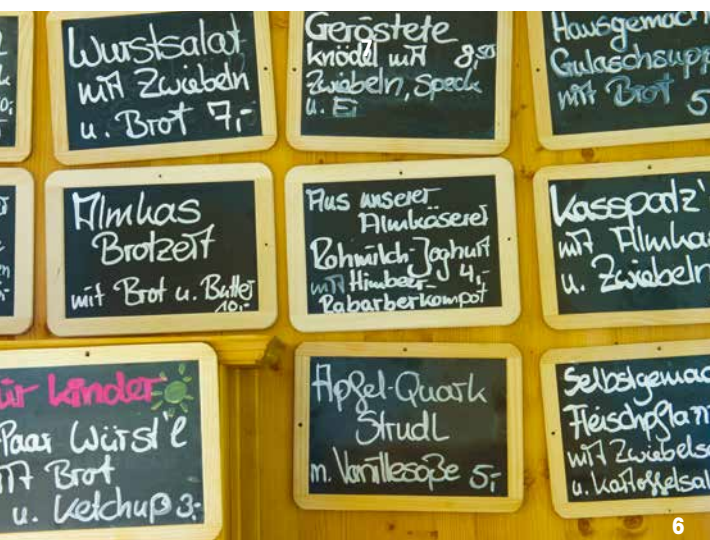 Wurstsalat
mit Zwiebeln
u. Brot 7,-
Geröstete
7
knödel mit 8,50
Zwiebeln, Speck
u. Ei
Hausgemach
Gulaschsupp
mit Brot 5
Almkas
Brotzeit
mit Brot u. Butter
10,-
Aus unserer
Almkäserei
Rohmilch-Joghurt
mit Himbeer- 4,-
Rabarberkompot
Kasspatz'
mit Almkas
u. Zwiebeln
ür kinder
Paar Würst'l
mit Brot
u. Ketchup 3,-
Apfel-Quark
Strudl
m. Vanillesoße 5,-
Selbstgemac
Fleischpflan
mit Zwiebelso
u. Kartoffelsal
6